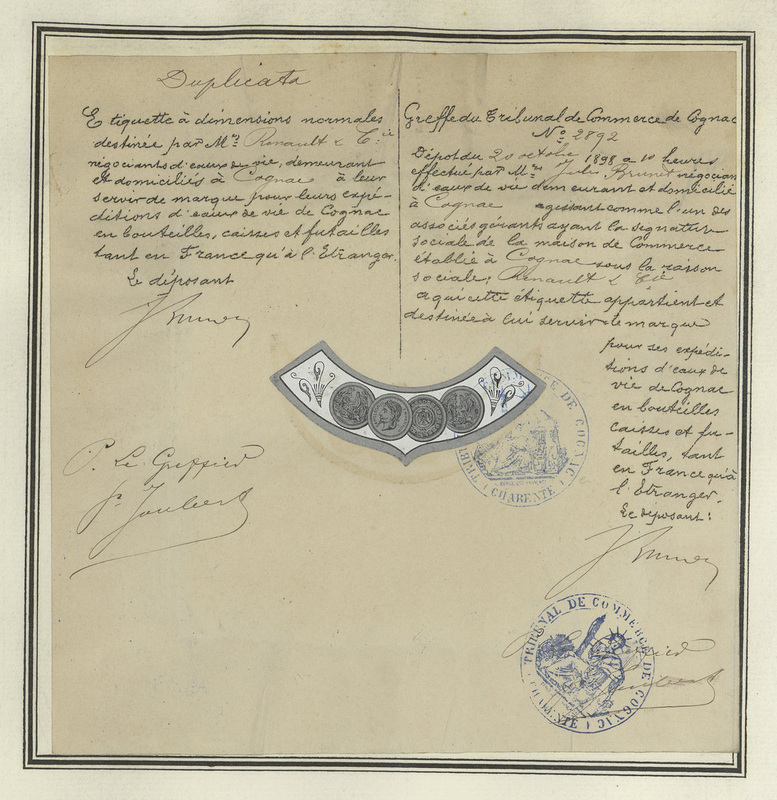 Duplicata
Etiquette à dimensions normales
destinée par Mrs Renault & Cie
négociants d'eaux de vie, demeurant
et domiciliés à Cognac à leur
servir de marque pour leurs expé-
ditions d'eaux de vie de Cognac
en bouteilles, caisses et futailles
tant en France qu'à l'Etranger.
Le déposant
J Brunet
P. Le Greffier
Joubert
Greffe du Tribunal de Commerce de Cognac
No 2892
Dépot du 20 octobre 1898 a 10 heures
effectué par Mr Jules Brunet négociant
d'eaux de vie demeurant et domicilié
à Cognac agissant comme l'un des
associés gérants ayant la signature
sociale de la maison de Commerce
établie à Cognac sous la raison
sociale: Renault & Cie
a qui cette étiquette appartient et
destinée à lui servir de marque
pour ses expédi-
tions d'eaux de
vie de Cognac
en bouteilles
caisses et fu-
tailles, tant
en France qu'à
l'Etranger.
Le déposant:
J Brunet
TRIBUNAL DE COMMERCE DE COGNAC
CHARENTE
TRIBUNAL DE COMMERCE DE COGNAC
CHARENTE
Joubert